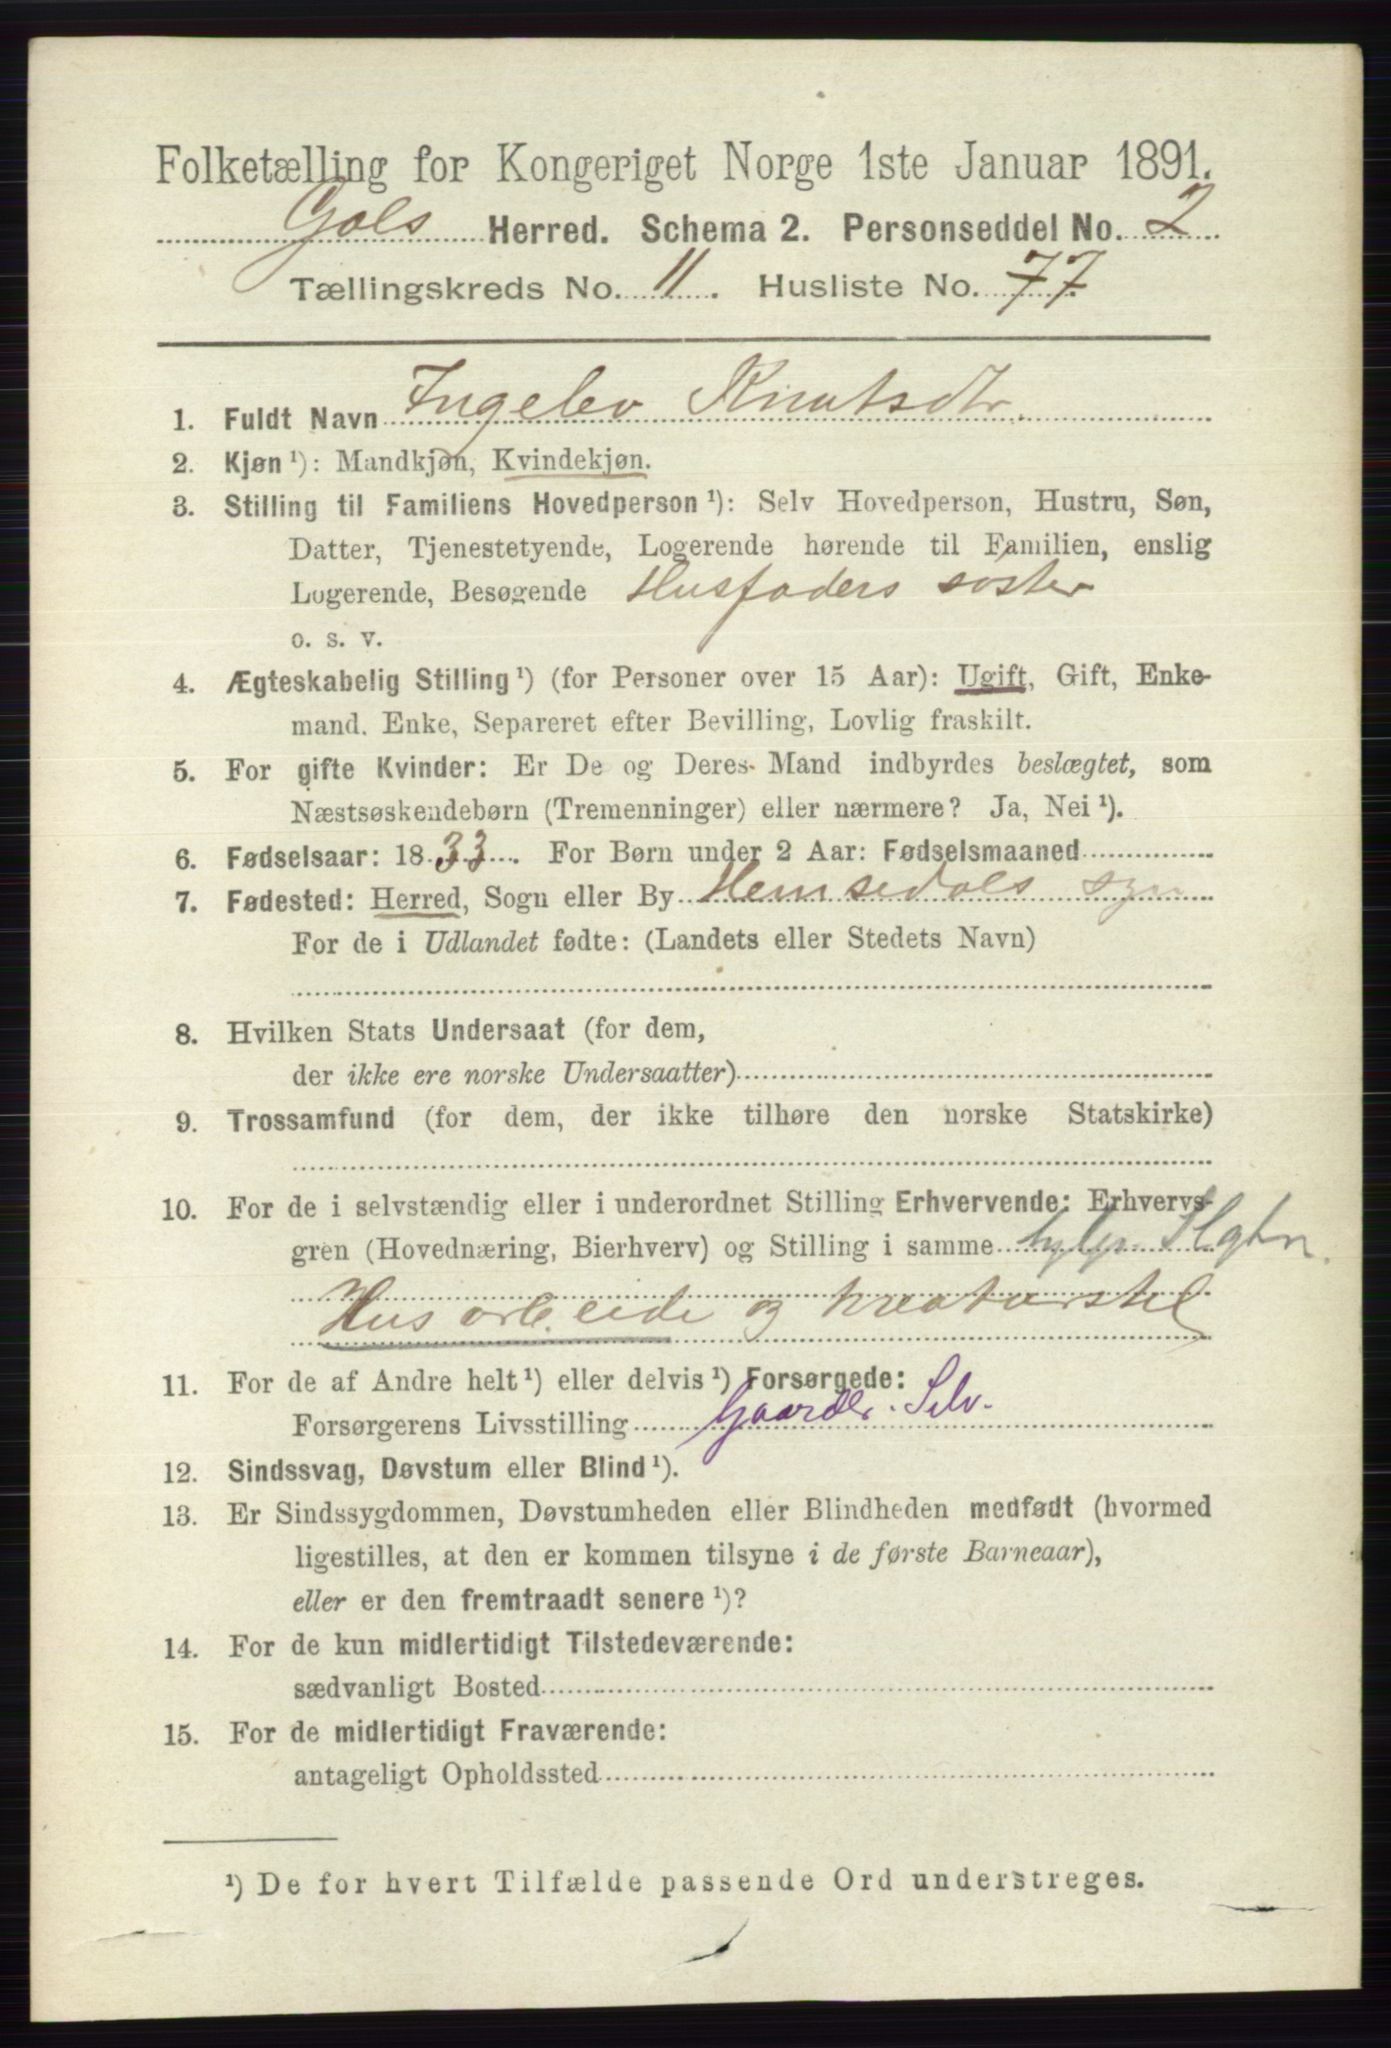 Folketælling for Kongeriget Norge 1ste Januar 1891.
Gols Herred. Schema 2. Personseddel No. 2
Tællingskreds No. 11. Husliste No. 77
1. Fuldt Navn Ingelev Knutsdtr.
2. Kjøn ¹): Mandkjøn, Kvindekjøn.
3. Stilling til Familiens Hovedperson ¹): Selv Hovedperson, Hustru, Søn,
Datter, Tjenestetyende, Logerende hørende til Familien, enslig
Logerende, Besøgende Husfaders søster
o. s. v.
4. Ægteskabelig Stilling ¹) (for Personer over 15 Aar): Ugift, Gift, Enke-
mand, Enke, Separeret efter Bevilling, Lovlig fraskilt.
5. For gifte Kvinder: Er De og Deres Mand indbyrdes beslægtet, som
Næstsøskendebørn (Tremenninger) eller nærmere? Ja, Nei ¹).
6. Fødselsaar: 1833. For Børn under 2 Aar: Fødselsmaaned
7. Fødested: Herred, Sogn eller By Hemsedals
For de i Udlandet fødte: (Landets eller Stedets Navn)
8. Hvilken Stats Undersaat (for dem,
der ikke ere norske Undersaatter)
9. Trossamfund (for dem, der ikke tilhøre den norske Statskirke)
10. For de i selvstændig eller i underordnet Stilling Erhvervende: Erhvervs-
gren (Hovednæring, Bierhverv) og Stilling i samme
Husarbeide og kreaturstel
11. For de af Andre helt ¹) eller delvis ¹) Forsørgede:
Forsørgerens Livsstilling Gaardbr. Selv.
12. Sindssvag, Døvstum eller Blind ¹).
13. Er Sindssygdommen, Døvstumheden eller Blindheden medfødt (hvormed
ligestilles, at den er kommen tilsyne i de første Barneaar),
eller er den fremtraadt senere ¹)?
14. For de kun midlertidigt Tilstedeværende:
sædvanligt Bosted
15. For de midlertidigt Fraværende:
antageligt Opholdssted
¹) De for hvert Tilfælde passende Ord understreges.